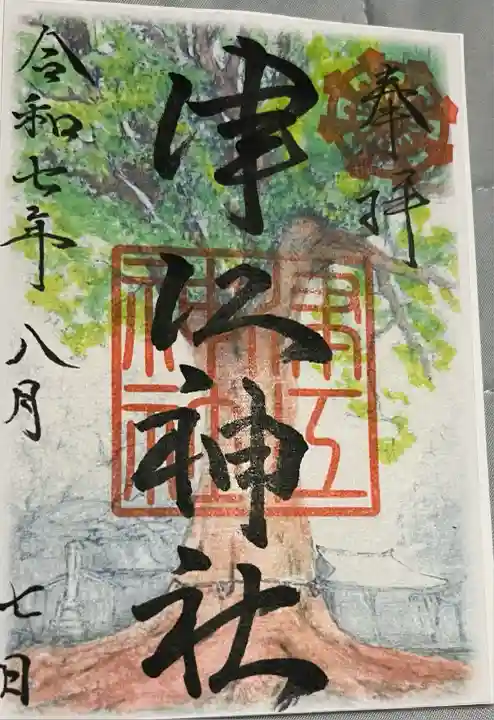 奉拝
津江神社
令和七年 八月 七日
津江神社